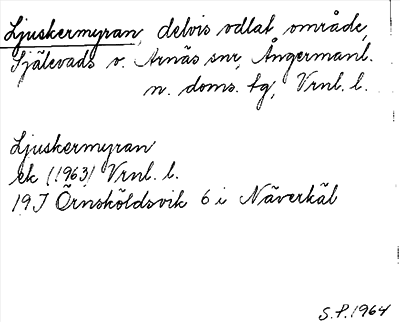 Ljuskermyran, delvis odlat område,
Själevads o. Arnäs snr, Ångermanl.
n. doms. tg, Vrnl. l.
Ljuskermyran
ek (1963) Vrnl. l.
19J Örnsköldsvik 6 i Näverkäl
S.P. 1964